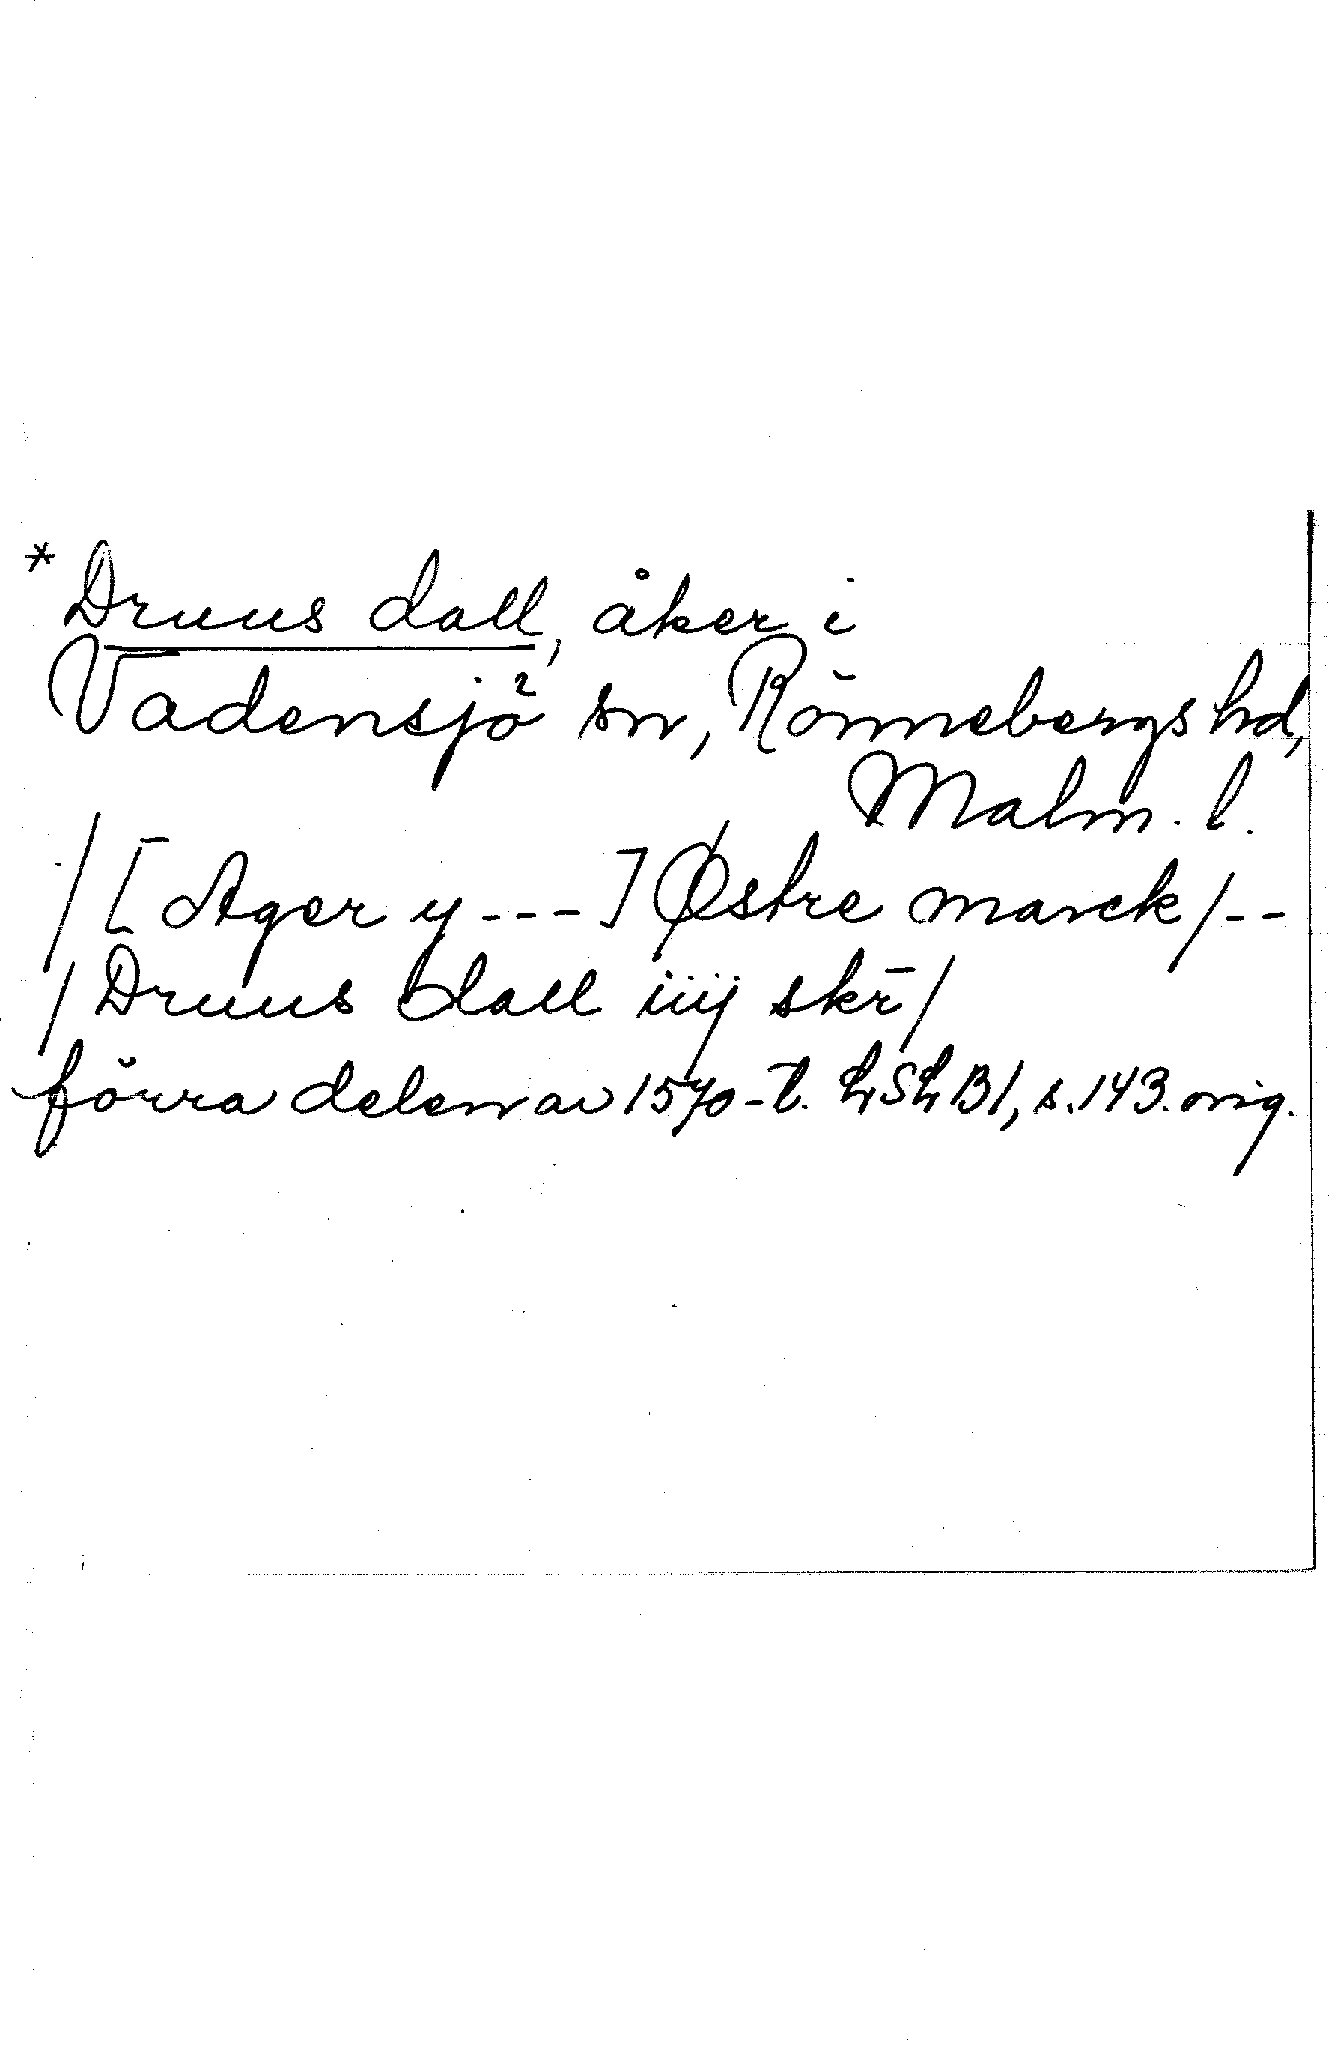 * Druus dall, åker i
Vadensjö sn, Rönnebergs hd,
Malm. l.
/ [Ager y ---] Østre marck / --
/ Druus dall iiij skr̄ /
förra delen av 1570-t. LSLB1, s. 143. orig.